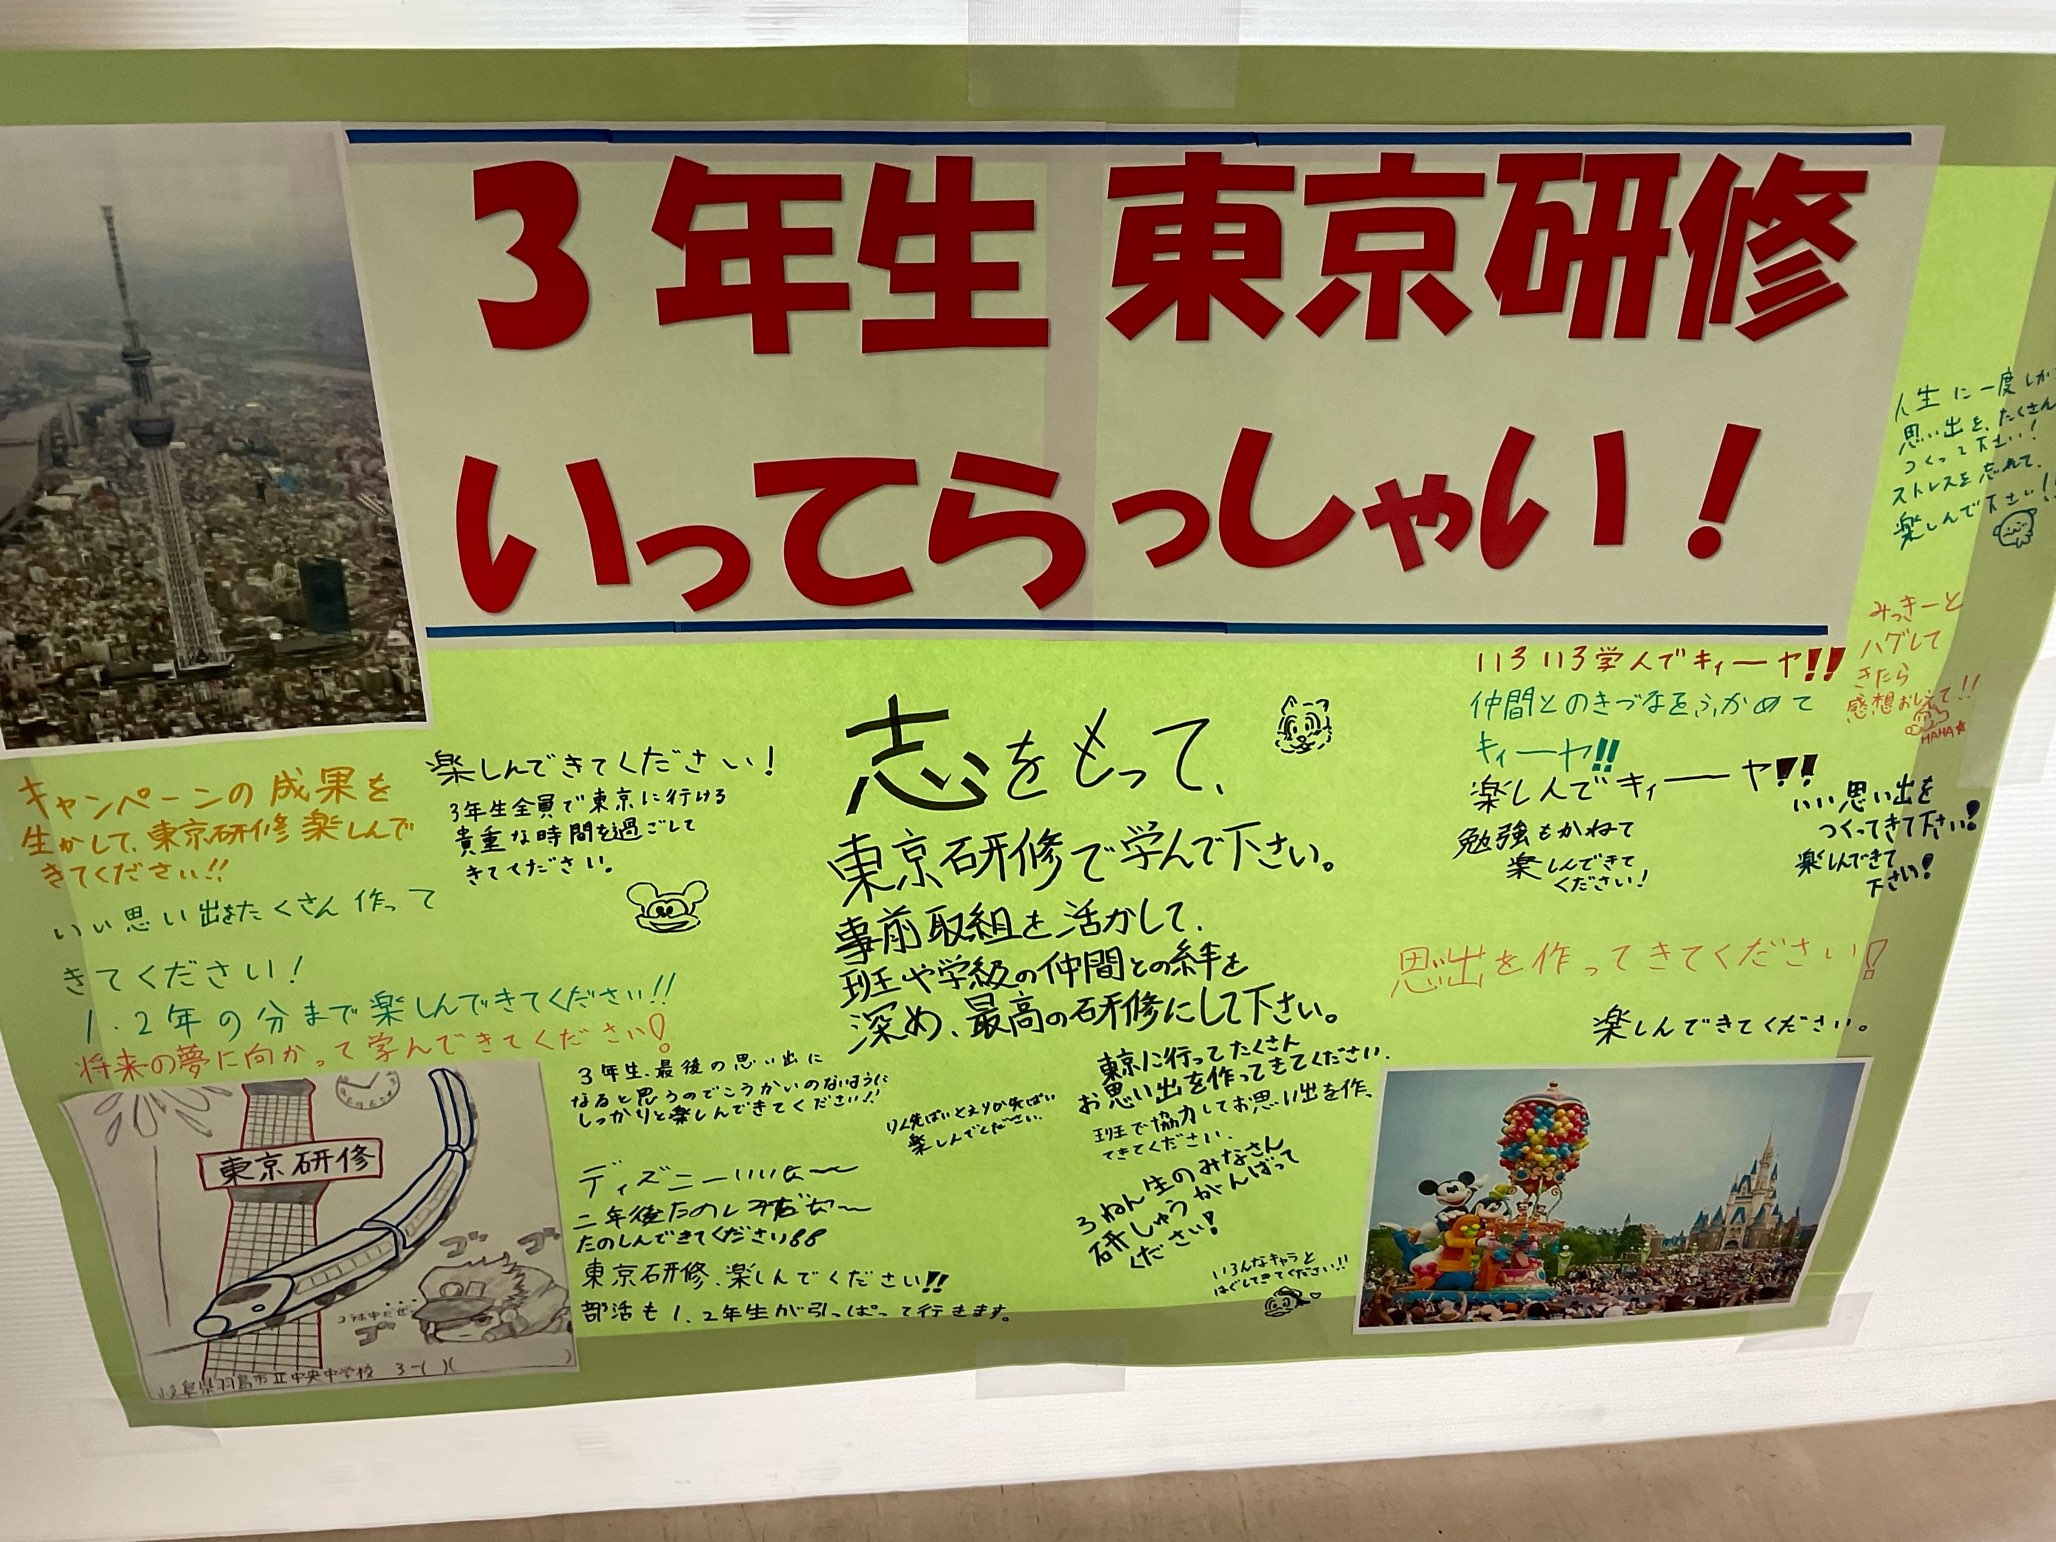 3年生 東京研修
いってらっしゃい！
人生に一度しか
思い出を、たくさん
つくって下さい！
ストレスを忘れて、
楽しんで下さい!!
みっきーと
ハグして
きたら
感想おしえて!!
HAHA☆
いろいろ学んでキィーヤ!!
仲間とのきづなをふかめて
キィーヤ!!
楽しんでキィーヤ!!
勉強もかねて
楽しんできて
ください！
いい思い出を
つくってきて下さい！
楽しんできて
下さい！
キャンペーンの成果を
生かして、東京研修楽しんで
きてください!!
楽しんできてください！
3年生全員で東京に行ける
貴重な時間を過ごして
きてください。
志をもって、
東京研修で学んで下さい。
事前取組を活かして、
班や学級の仲間との絆を
深め、最高の研修にして下さい。
いい思い出をたくさん作って
きてください！
1.2年の分まで楽しんできてください!!
将来の夢に向かって学んできてください！
思出を作ってきてください！
楽しんできてください。
3年生、最後の思い出に
なると思うのでこうかいのないように
しっかりと楽しんできてください!!
楽しんでください。
東京に行ってたくさん
お思い出を作ってきてください。
班で協力してお思い出を作、
てきてください。
3ねん生のみなさん
研しゅうがんばって
ください！
いろんなキャラと
はぐしてきてください!!
ディズニーいいな〜
二年後たのしみだな〜
たのしんできてください
東京研修、楽しんでください!!
部活も1.2年生が引っぱって行きます。
東京研修
ゴゴ
ゴ
岐阜県羽島市立中央中学校 3-( )( )